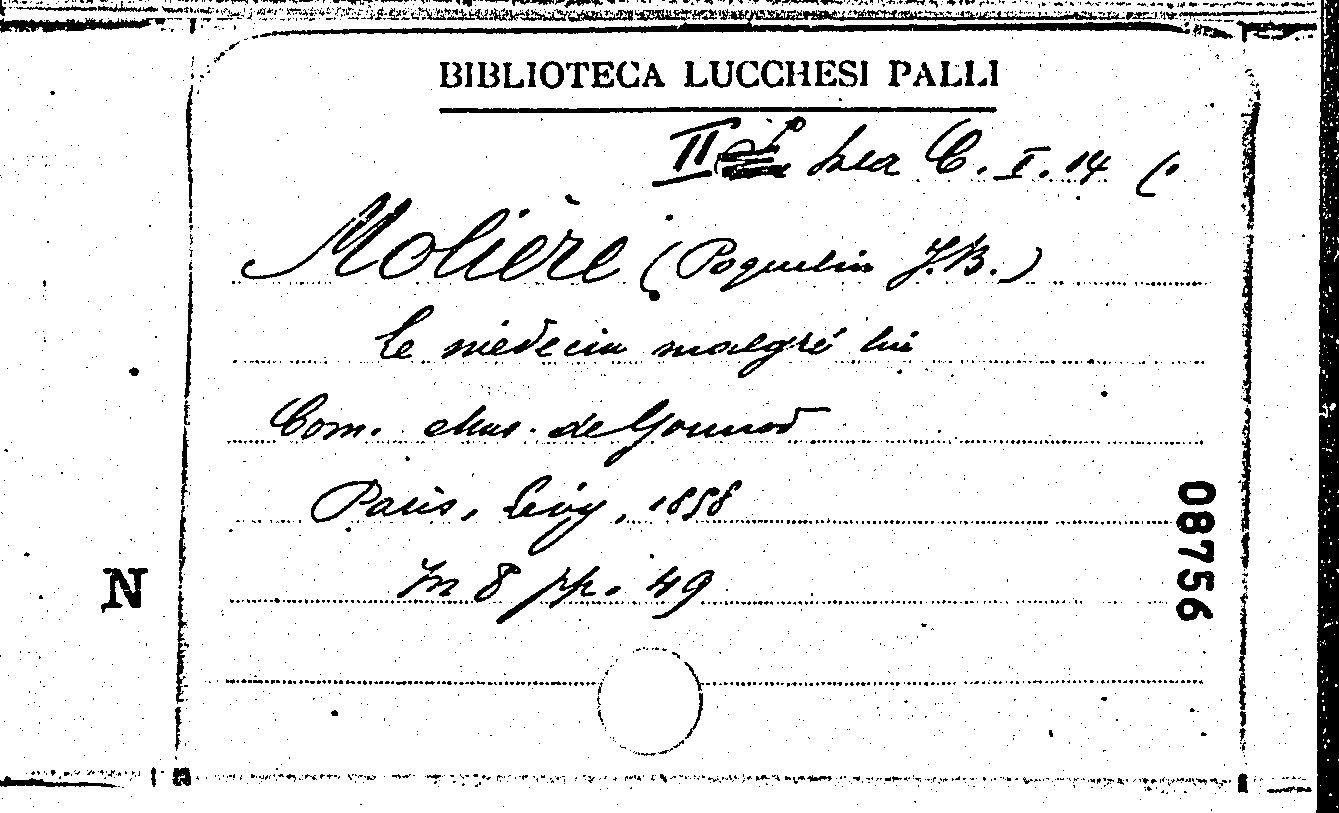 BIBLIOTECA LUCCHESI PALLI
II Sca C. I. 14 (.
Molière (Poquelin J.B.)
Le médecin malgré lui
Com. Mus. de Gounod
Paris, Lévy, 1858
08756
In 8 pp. 49
N